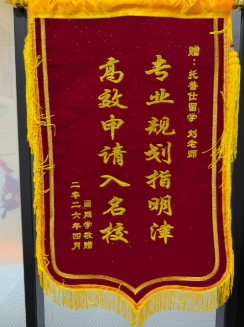 赠：托普仕留学 刘老师
专业规划指明津
高效申请入名校
二零二六年四月